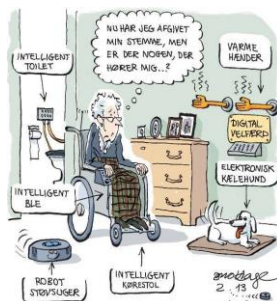 NU HAR JEG AFGIVET
MIN STEMME, MEN
ER DER NOGEN, DER
HØRER MIG..?
INTELLIGENT
TOILET
VARME
HÆNDER
DIGITAL
VELFÆRD
ELEKTRONISK
KÆLEHUND
INTELLIGENT
BLE
ROBOT
STØVSUGER
INTELLIGENT
KØRESTOL
2 13